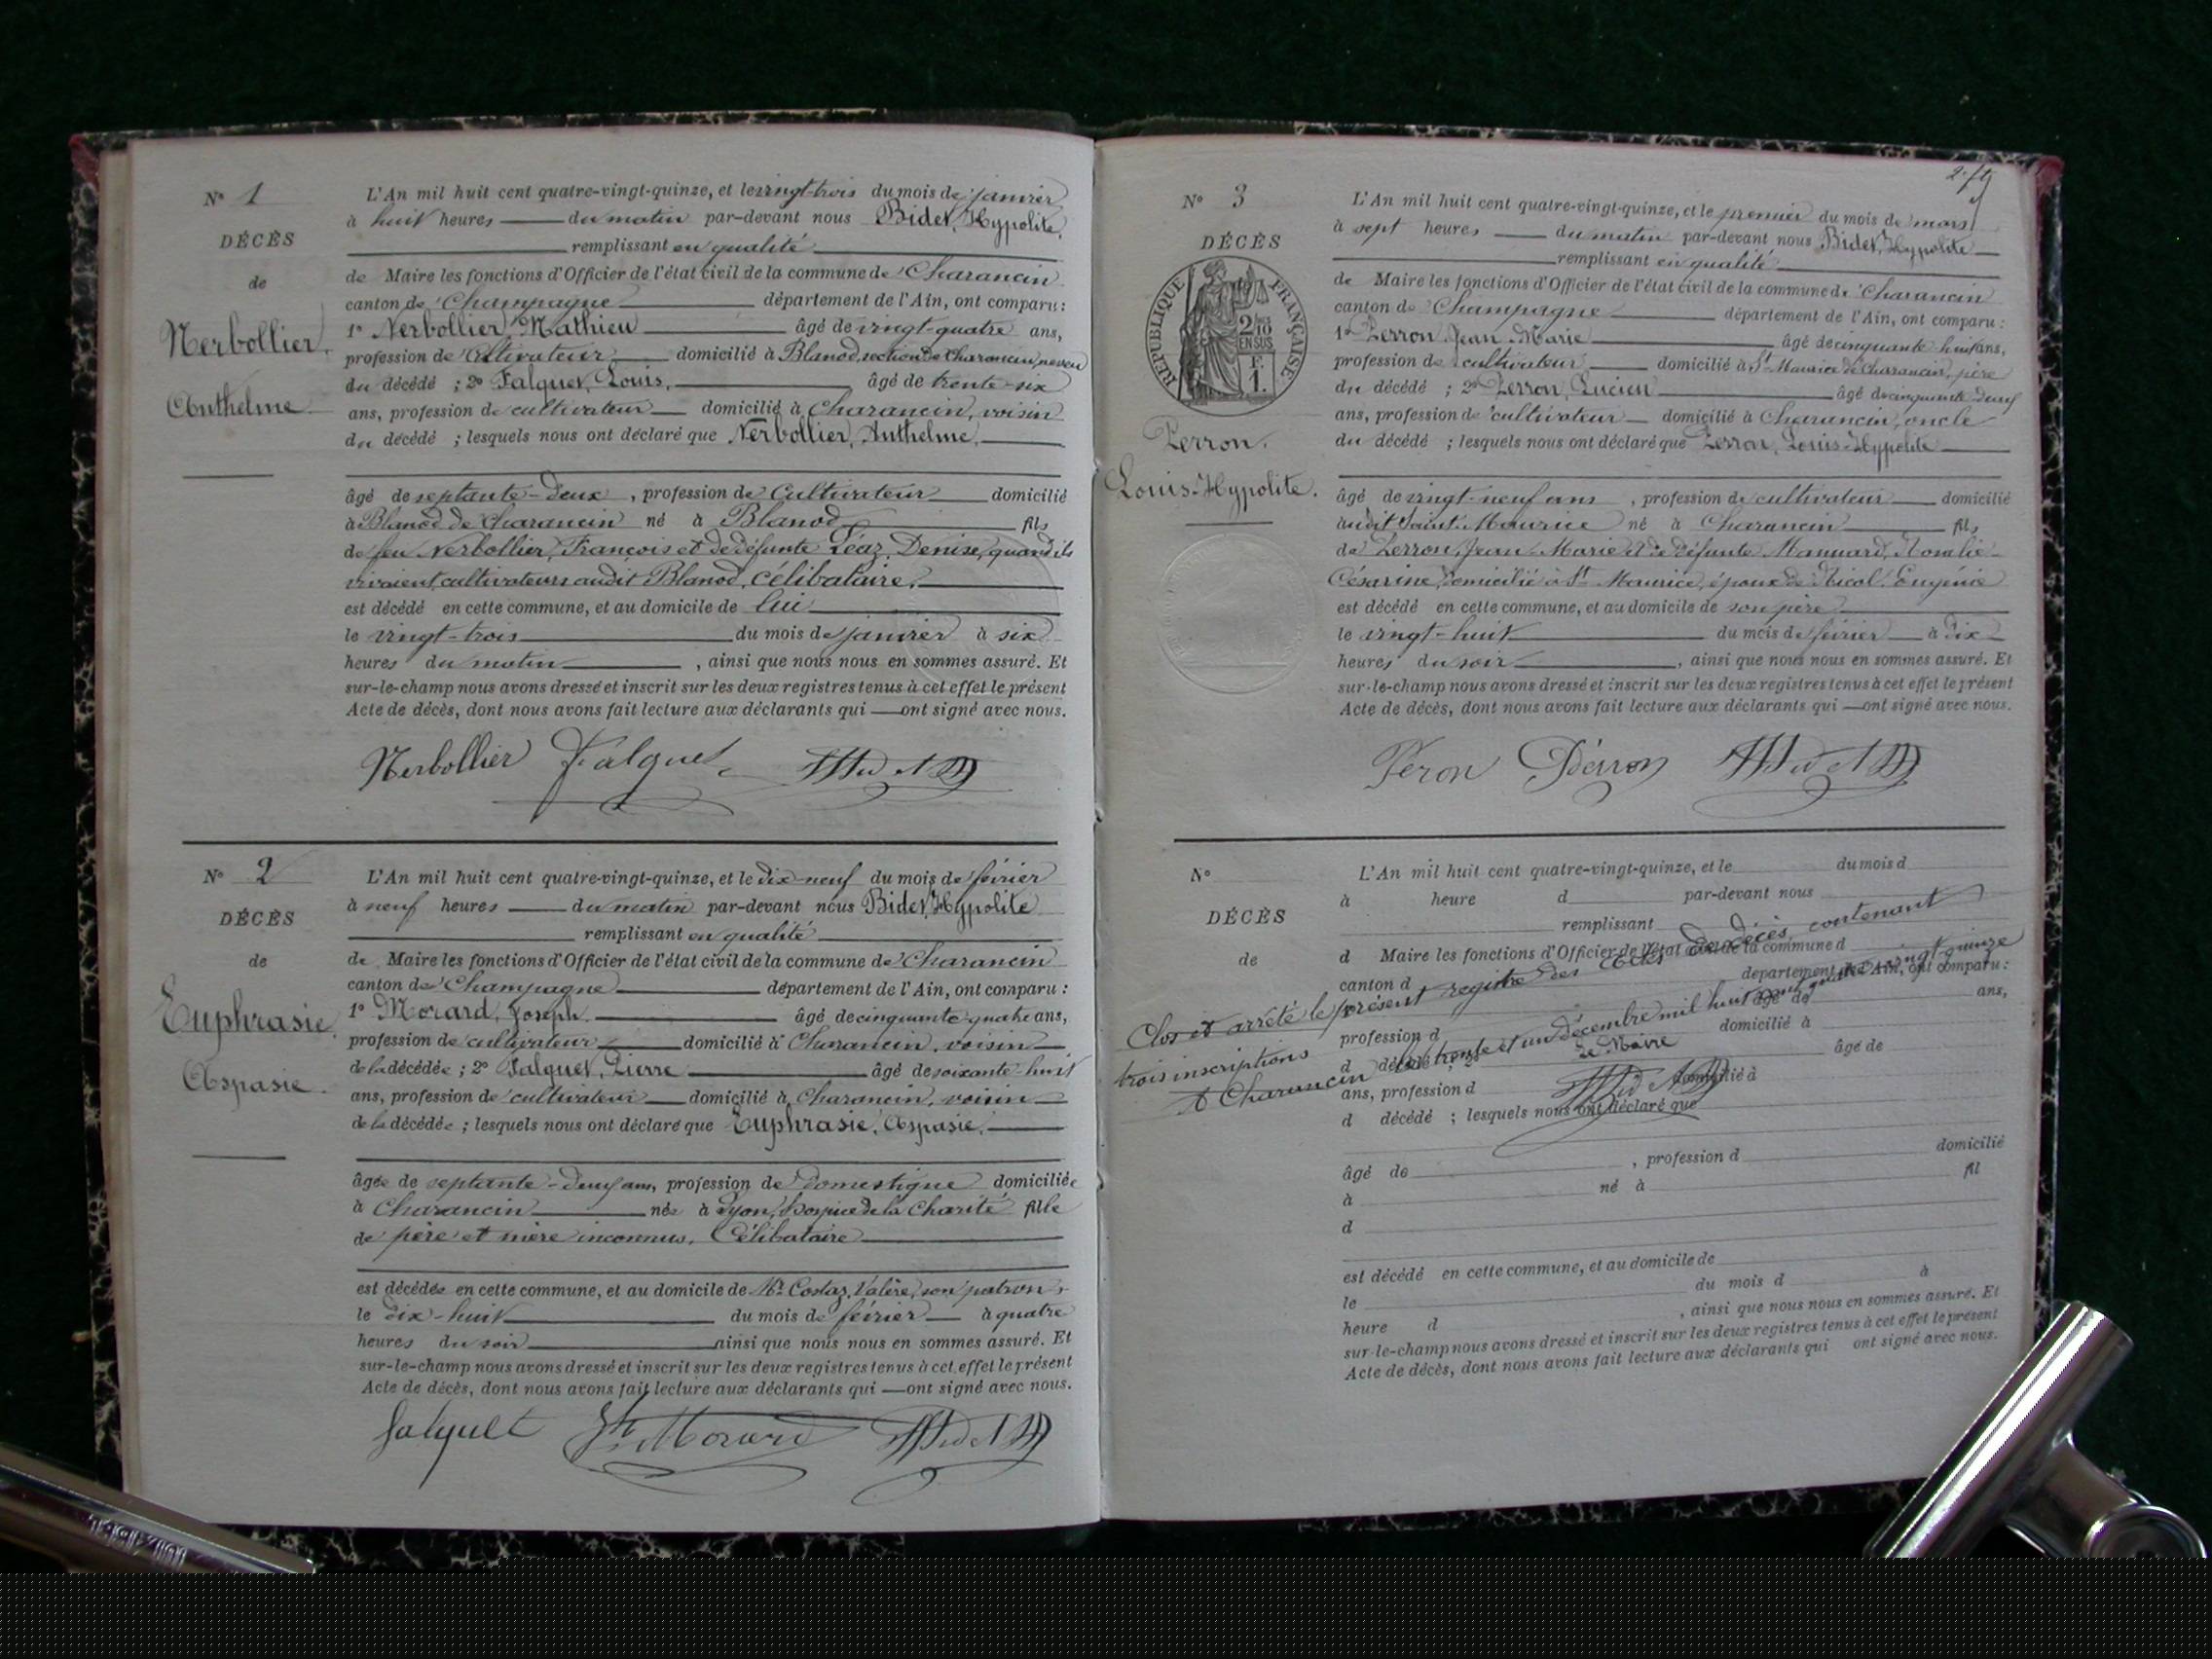 N° 1
DÉCÈS
de
Nerbollier,
Anthelme
L'An mil huit cent quatre-vingt-quinze, et le vingt-trois du mois de janvier
à huit heures du matin par-devant nous Bidet, Hypolite,
remplissant en qualité
de Maire les fonctions d'Officier de l'état civil de la commune de Charancin
canton de Champagne département de l'Ain, ont comparu :
1° Nerbollier Mathieu âgé de vingt-quatre ans,
profession de Cultivateur domicilié à Blanod, section de Charancin, neveu
du décédé ; 2° Falquet, Louis, âgé de trente-six
ans, profession de cultivateur domicilié à Charancin, voisin
du décédé ; lesquels nous ont déclaré que Nerbollier, Anthelme,
âgé de septante-deux , profession de Cultivateur domicilié
à Blanod de Charancin né à Blanod fils
de feu Nerbollier, François et de défunte Léaz, Denise, quand ils
vivaient cultivateurs audit Blanod, célibataire,
est décédé en cette commune, et au domicile de lui
le vingt-trois du mois de janvier à six
heures du matin , ainsi que nous nous en sommes assuré. Et
sur-le-champ nous avons dressé et inscrit sur les deux registres tenus à cet effet le présent
Acte de décès, dont nous avons fait lecture aux déclarants qui ont signé avec nous.
Nerbollier Falquet
N° 2
DÉCÈS
de
Euphrasie,
Aspasie
L'An mil huit cent quatre-vingt-quinze, et le dix-neuf du mois de février
à neuf heures du matin par-devant nous Bidet, Hypolite
remplissant en qualité
de Maire les fonctions d'Officier de l'état civil de la commune de Charancin
canton de Champagne département de l'Ain, ont comparu :
1° Morard, Joseph. âgé de cinquante-quatre ans,
profession de cultivateur domicilié à Charancin, voisin
de la décédée ; 2° Falquet, Pierre âgé de soixante-huit
ans, profession de cultivateur domicilié à Charancin, voisin
de la décédée ; lesquels nous ont déclaré que Euphrasie, Aspasie,
âgée de septante-deux ans, profession de domestique domiciliée
à Charancin née à Lyon, hospice de la Charité fille
de père et mère inconnus. Célibataire
est décédée en cette commune, et au domicile de Mr. Costaz, Valère, son patron,
le dix-huit du mois de février à quatre
heures du soir ainsi que nous nous en sommes assuré. Et
sur-le-champ nous avons dressé et inscrit sur les deux registres tenus à cet effet le présent
Acte de décès, dont nous avons fait lecture aux déclarants qui ont signé avec nous.
Falquet Morard
N° 3
DÉCÈS
RÉPUBLIQUE FRANÇAISE
2/10 EN SUS
F. 1.
Perron.
Louis-Hypolite.
L'An mil huit cent quatre-vingt-quinze, et le premier du mois de mars
à sept heures du matin par-devant nous Bidet, Hypolite
remplissant en qualité
de Maire les fonctions d'Officier de l'état civil de la commune de Charancin
canton de Champagne département de l'Ain, ont comparu :
1° Perron Jean-Marie âgé de cinquante-huit ans,
profession de cultivateur domicilié à St Maurice de Charancin, père
du décédé ; 2° Perron, Lucien âgé de cinquante-deux
ans, profession de cultivateur domicilié à Charancin, oncle
du décédé ; lesquels nous ont déclaré que Perron, Louis-Hypolite
âgé de vingt-neuf ans , profession de cultivateur domicilié
audit Saint-Maurice né à Charancin fils
de Perron, Jean-Marie et de défunte Mannard, Rosalie-
Césarine, domicilié à St Maurice, époux de Nicol, Eugénie
est décédé en cette commune, et au domicile de son père
le vingt-huit du mois de février à dix
heures du soir , ainsi que nous nous en sommes assuré. Et
sur-le-champ nous avons dressé et inscrit sur les deux registres tenus à cet effet le présent
Acte de décès, dont nous avons fait lecture aux déclarants qui ont signé avec nous.
Péron Péron
N°
DÉCÈS
de
L'An mil huit cent quatre-vingt-quinze, et le du mois d
à heure d par-devant nous
remplissant
d Maire les fonctions d'Officier de l'état civil de la commune d
canton d département de l'Ain, ont comparu :
âgé de ans,
profession d domicilié à
d décédé ; 2° âgé de
ans, profession d domicilié à
d décédé ; lesquels nous ont déclaré que
Clos et arrêté le présent registre des actes de décès, contenant
trois inscriptions
A Charancin le trente et un décembre mil huit cent quatre-vingt-quinze
Le Maire
âgé de , profession d domicilié
à né à fil
d
est décédé en cette commune, et au domicile de
le du mois d à
heure d , ainsi que nous nous en sommes assuré. Et
sur-le-champ nous avons dressé et inscrit sur les deux registres tenus à cet effet le présent
Acte de décès, dont nous avons fait lecture aux déclarants qui ont signé avec nous.